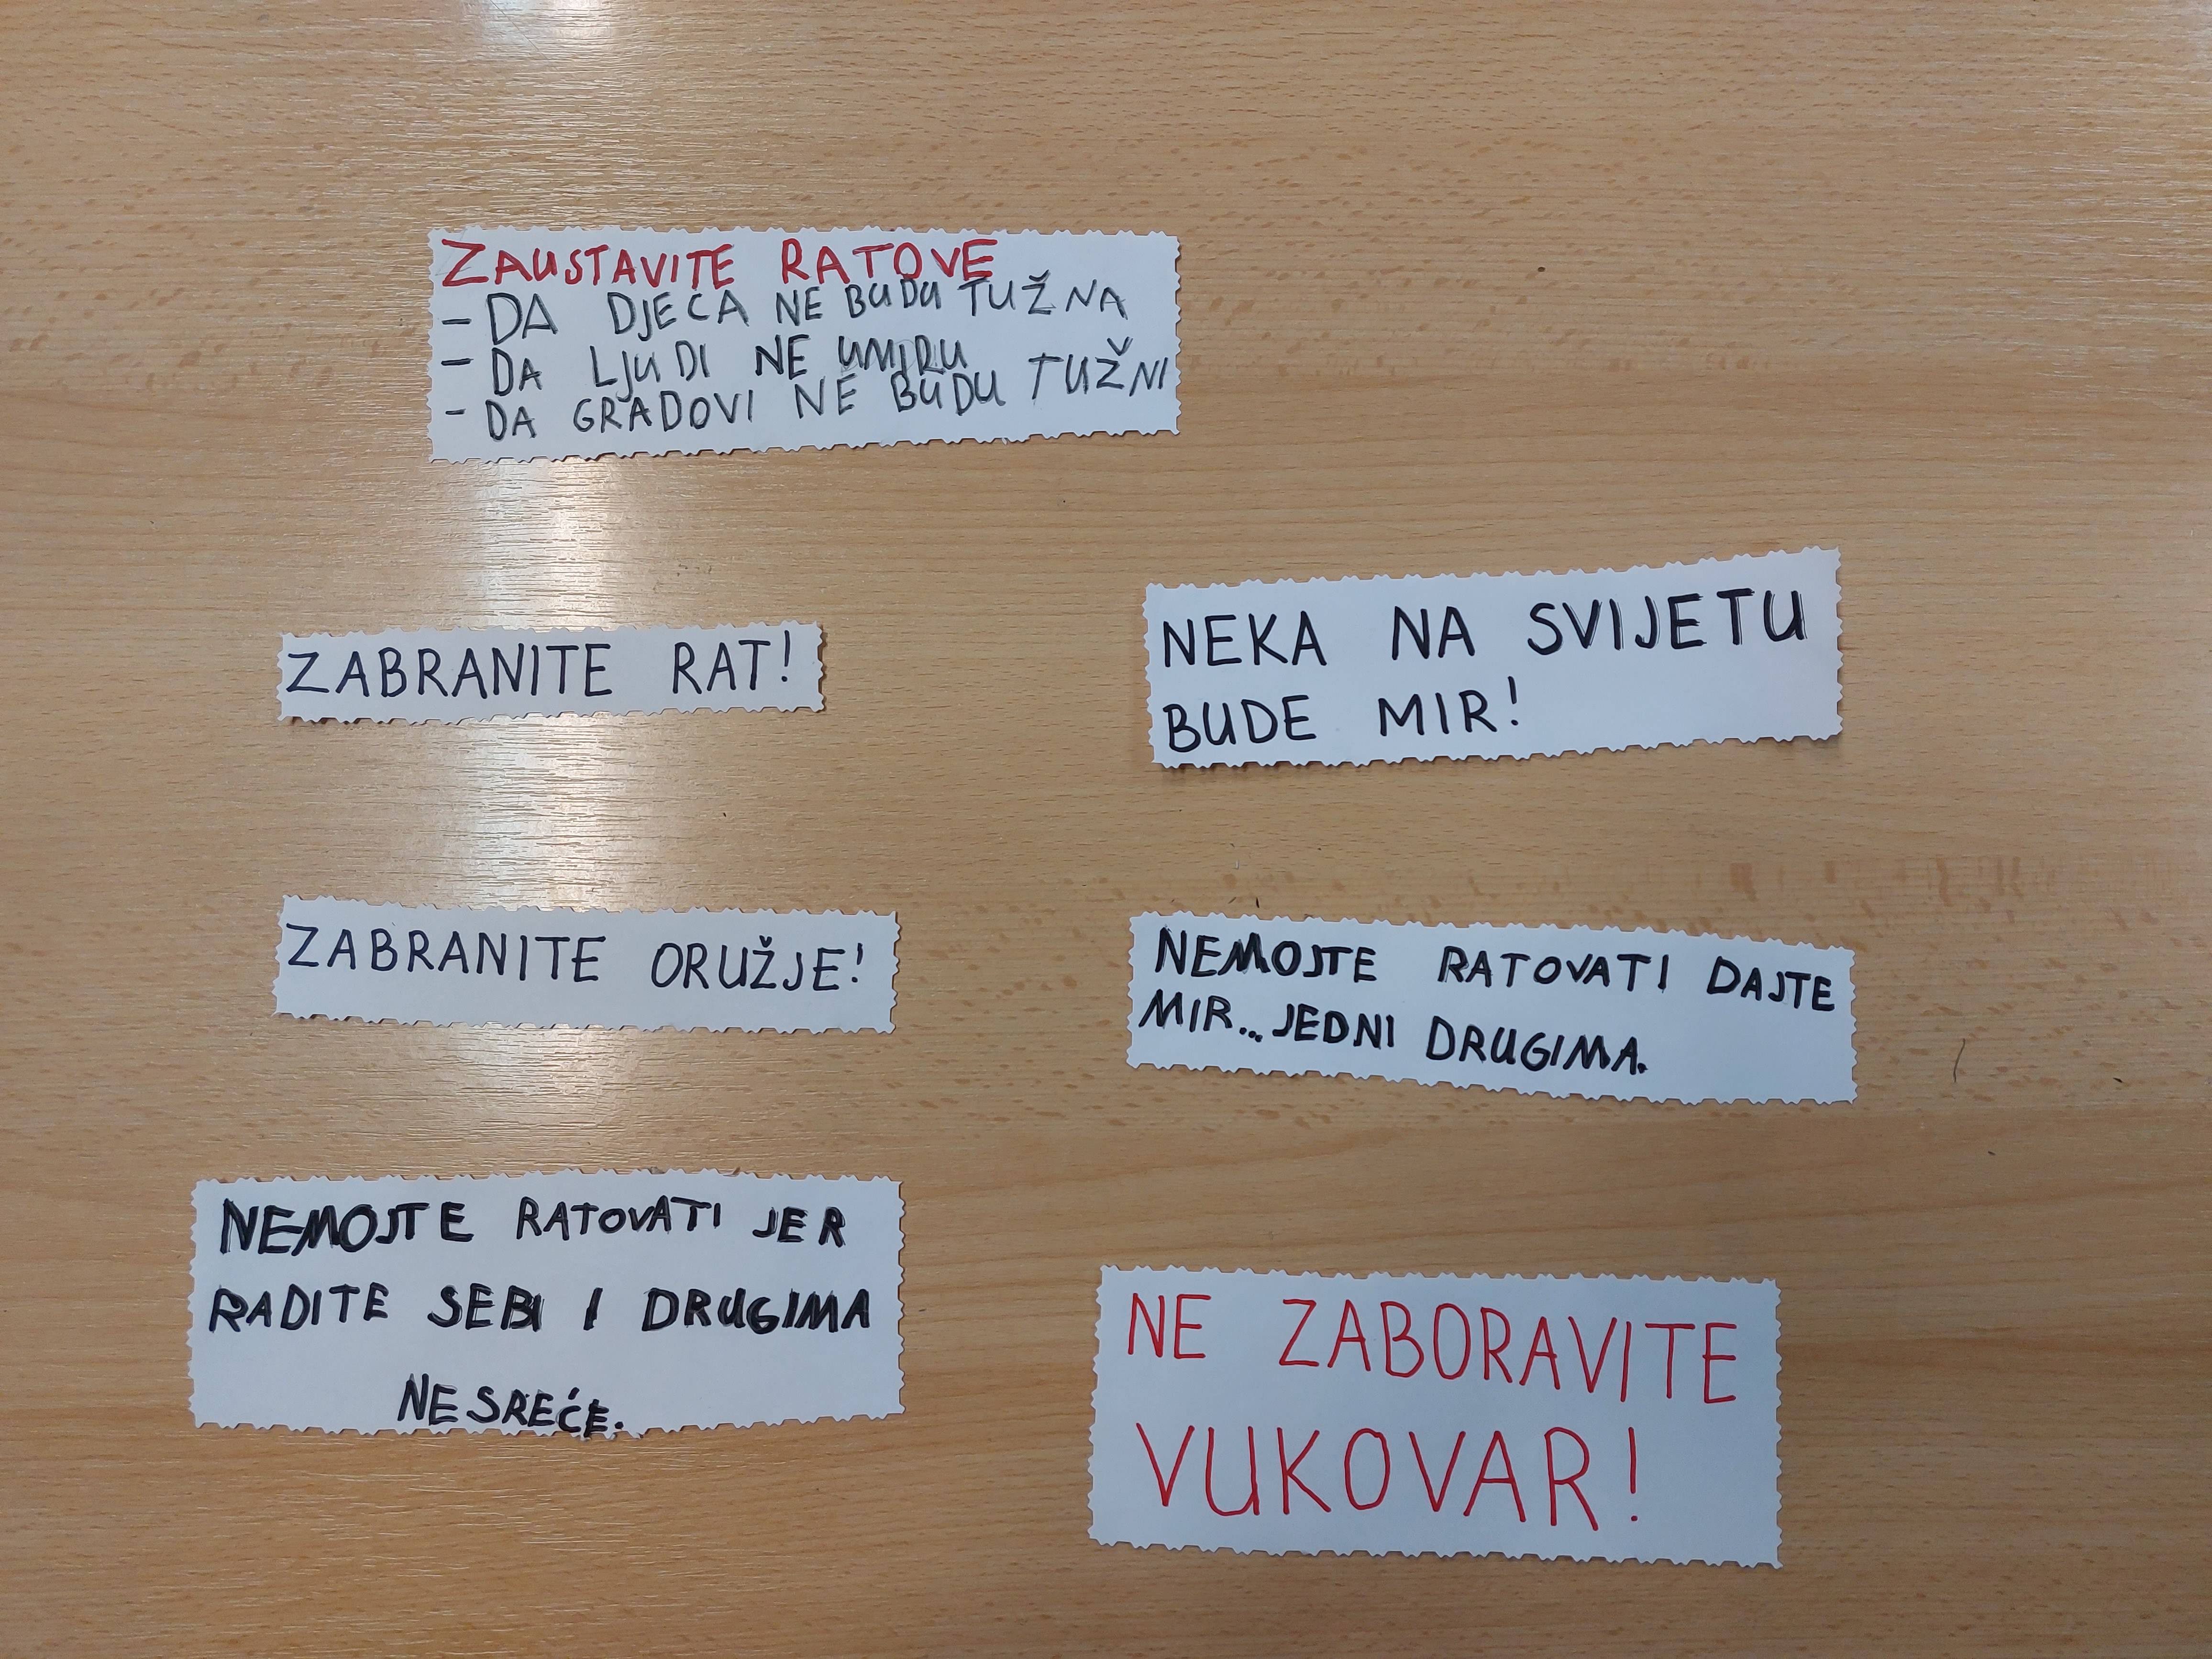 ZAUSTAVITE RATOVE
- DA DJECA NE BUDU TUŽNA
- DA LJUDI NE UMIRU
- DA GRADOVI NE BUDU TUŽNI
ZABRANITE RAT!
NEKA NA SVIJETU
BUDE MIR!
ZABRANITE ORUŽJE!
NEMOJTE RATOVATI DAJTE
MIR... JEDNI DRUGIMA.
NEMOJTE RATOVATI JER
RADITE SEBI I DRUGIMA
NESREĆE.
NE ZABORAVITE
VUKOVAR!